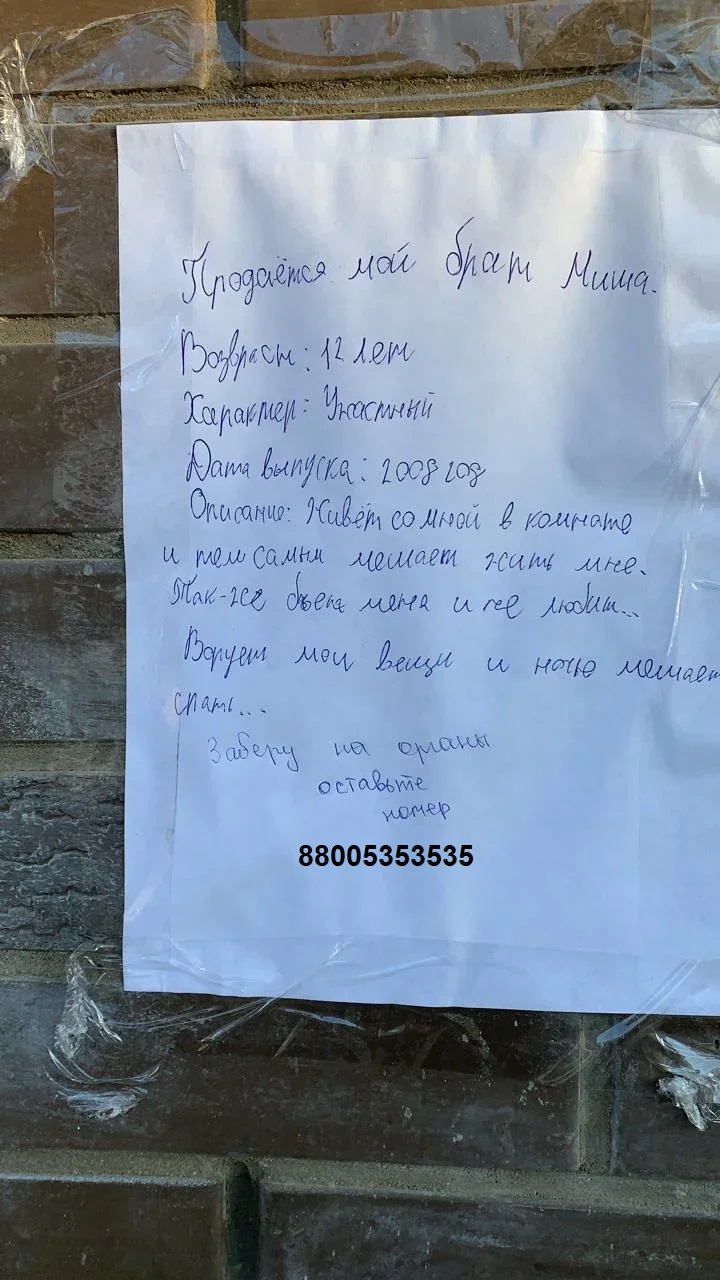 Продаётся мой брат Миша.
Возврасть: 12 лет
Характер: Ужастный
Дата выпуска: 2008 год
Описание: Живёт со мной в комнате
и тем самым мешает жить мне.
Так-же бьет меня и не любит...
Ворует мои вещи и ночью мешает
спать...
Заберу на органы
оставьте
номер
88005353535